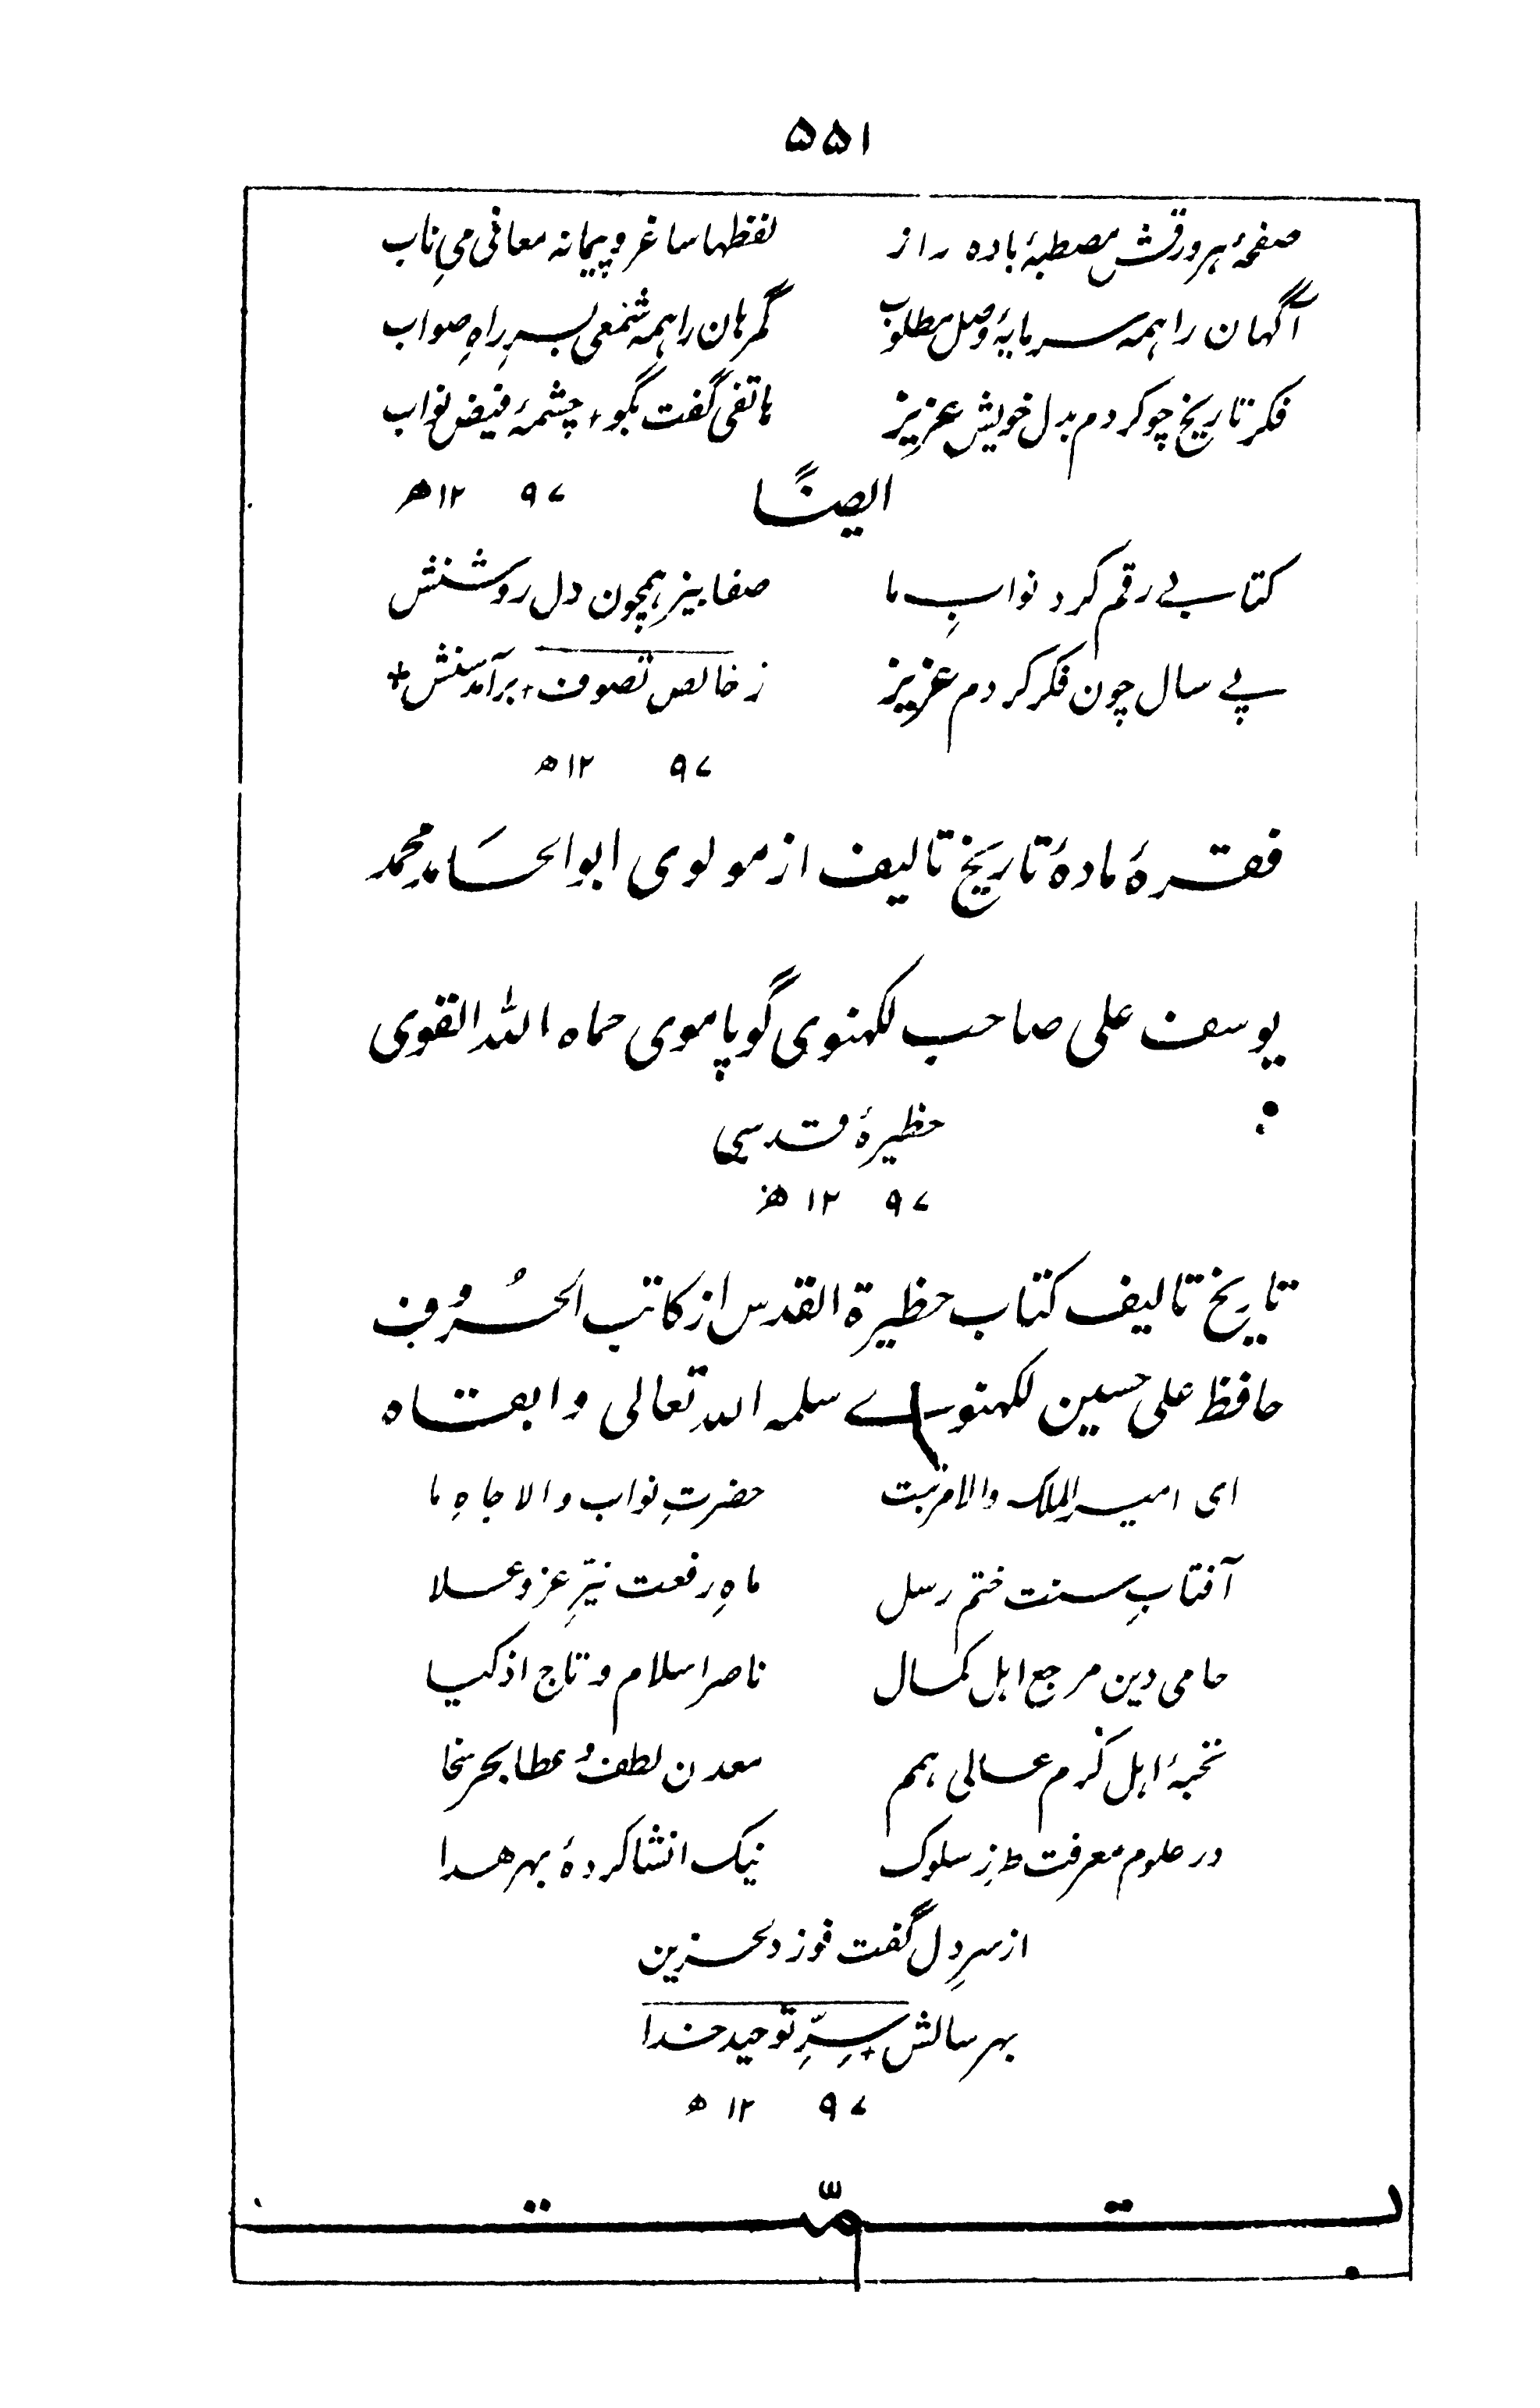 ۵۵۱
صفحۂ ہر ورقش مصطبۂ بادہ راز لفظہا ساغر و پیمانہ معانی میِ ناب
آگہان را ہمہ سرمایۂ وصل مطلوب گمرہان را ہمہ شمعی بسرِ راہِ صواب
فکر تاریخ چو کردم بدل خویش عزیز ہاتفی گفت بگو، چشمۂ فیض نواب
ایضاً
۱۲۹۷ھ
کتابے رقم کرد نوابِ ما صفا بیز ہمچون دل روشنش
پے سال چون فکر کردم عزیز ز خالص تصوف + برآمد سنش +
۱۲۹۷ھ
فقرۂ مادۂ تاریخ تالیف از مولوی ابو الحَسامد محمد
یوسف علی صاحب لکہنوی گوپاموی حماہ اللہ القوی
حظیرۂ قدسی
۱۲۹۷ھ
تاریخ تالیف کتاب حظیرة القدس از کاتب الحُرُوف
حافظ علی حسین لکہنوے سلمہ اللہ تعالی و ابقاہ
ای امیر الملک والا مرتبت حضرتِ نواب والا جاہِ ما
آفتابِ سنت ختم رسل ماہِ رفعت نیّرِ عز و علا
حامی دین مرجع اہل کمال ناصر اسلام و تاج اذکیا
نخبۂ اہل کرم عالی ہمم معدن لطف و عطا بحر سخا
در علوم معرفت طرز سلوک نیک انشا کردۂ بہر ہدا
از سرِ دل گفت فوز دلحزین
بہر سالش + سِرِّ توحید خدا
۱۲۹۷ھ
تمّت